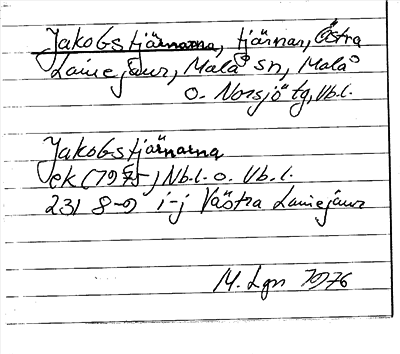 Jakobstjärnarna, tjärnar, Östra
Lainejaur, Malå sn, Malå
o. Norsjö tg, Vb.l.
Jakobstjärnarna
ek (1975) Nb.l. o. Vb. l.
231 8-9 i-j Västra Lainejaur
M. Lgn 1976